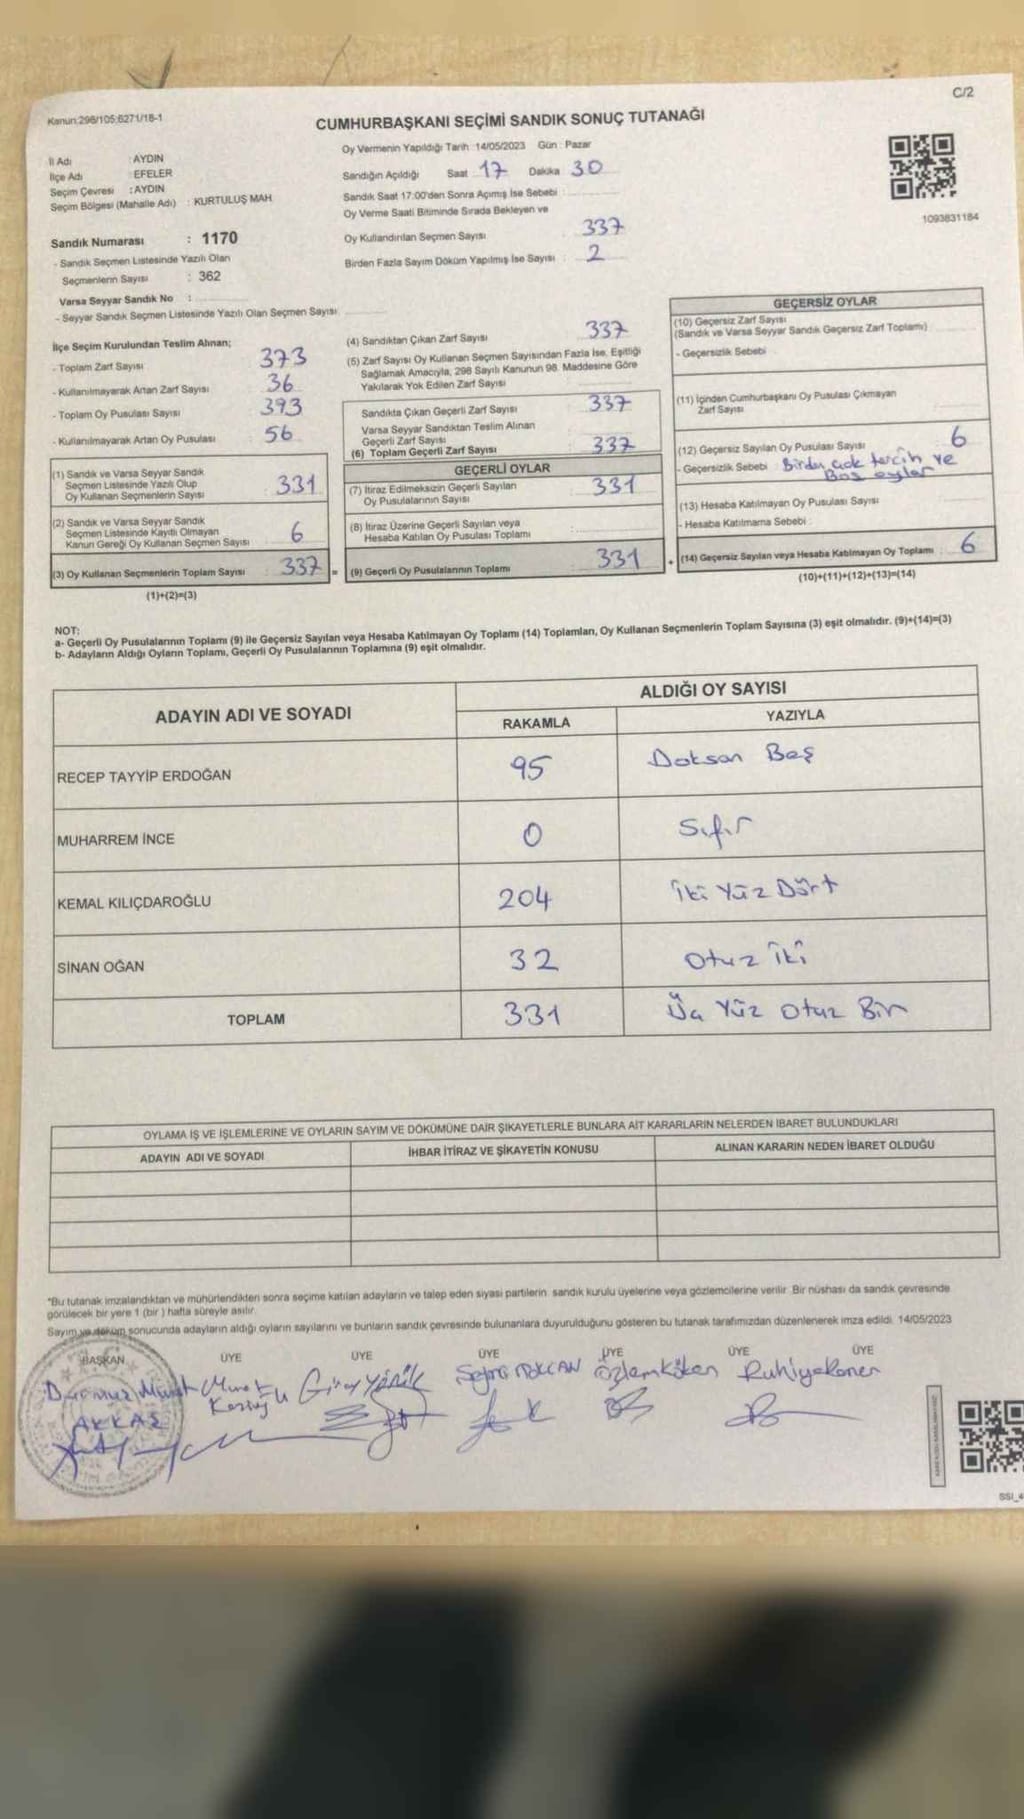 C/2
Kanun:298/105;6271/18-1
CUMHURBAŞKANI SEÇİMİ SANDIK SONUÇ TUTANAĞI
İl Adı : AYDIN
İlçe Adı : EFELER
Seçim Çevresi : AYDIN
Seçim Bölgesi (Mahalle Adı) : KURTULUŞ MAH
Sandık Numarası : 1170
- Sandık Seçmen Listesinde Yazılı Olan
Seçmenlerin Sayısı : 362
Varsa Seyyar Sandık No :
- Seyyar Sandık Seçmen Listesinde Yazılı Olan Seçmen Sayısı:
Oy Vermenin Yapıldığı Tarih :14/05/2023 Gün : Pazar
Sandığın Açıldığı Saat : 17 Dakika 30
Sandık Saat 17:00'den Sonra Açımış İse Sebebi :
Oy Verme Saati Bitiminde Sırada Bekleyen ve
Oy Kullandırılan Seçmen Sayısı : 337
Birden Fazla Sayım Döküm Yapılmış İse Sayısı : 2
1093831184
İlçe Seçim Kurulundan Teslim Alınan;
- Toplam Zarf Sayısı : 373
- Kullanılmayarak Artan Zarf Sayısı : 36
- Toplam Oy Pusulası Sayısı : 393
- Kullanılmayarak Artan Oy Pusulası : 56
(1) Sandık ve Varsa Seyyar Sandık
Seçmen Listesinde Yazılı Olup
Oy Kullanan Seçmenlerin Sayısı : 331
(2) Sandık ve Varsa Seyyar Sandık
Seçmen Listesinde Kayıtlı Olmayan
Kanun Gereği Oy Kullanan Seçmen Sayısı : 6
(3) Oy Kullanan Seçmenlerin Toplam Sayısı : 337 =
(1)+(2)=(3)
(4) Sandıktan Çıkan Zarf Sayısı : 337
(5) Zarf Sayısı Oy Kullanan Seçmen Sayısından Fazla İse, Eşitliği
Sağlamak Amacıyla, 298 Sayılı Kanunun 98. Maddesine Göre
Yakılarak Yok Edilen Zarf Sayısı
Sandıkta Çıkan Geçerli Zarf Sayısı : 337
Varsa Seyyar Sandıktan Teslim Alınan
Geçerli Zarf Sayısı
(6) Toplam Geçerli Zarf Sayısı : 337
GEÇERLİ OYLAR
(7) İtiraz Edilmeksizin Geçerli Sayılan
Oy Pusulalarının Sayısı : 331
(8) İtiraz Üzerine Geçerli Sayılan veya
Hesaba Katılan Oy Pusulası Toplamı :
(9) Geçerli Oy Pusulalarının Toplamı : 331 +
GEÇERSİZ OYLAR
(10) Geçersiz Zarf Sayısı
(Sandık ve Varsa Seyyar Sandık Geçersiz Zarf Toplamı)
- Geçersizlik Sebebi :
(11) İçinden Cumhurbaşkanı Oy Pusulası Çıkmayan
Zarf Sayısı
(12) Geçersiz Sayılan Oy Pusulası Sayısı : 6
- Geçersizlik Sebebi : Birden çok tercih ve
Boş oylar
(13) Hesaba Katılmayan Oy Pusulası Sayısı
- Hesaba Katılmama Sebebi :
(14) Geçersiz Sayılan veya Hesaba Katılmayan Oy Toplamı : 6
(10)+(11)+(12)+(13)=(14)
NOT:
a- Geçerli Oy Pusulalarının Toplamı (9) ile Geçersiz Sayılan veya Hesaba Katılmayan Oy Toplamı (14) Toplamları, Oy Kullanan Seçmenlerin Toplam Sayısına (3) eşit olmalıdır. (9)+(14)=(3)
b- Adayların Aldığı Oyların Toplamı, Geçerli Oy Pusulalarının Toplamına (9) eşit olmalıdır.
ADAYIN ADI VE SOYADI
ALDIĞI OY SAYISI
RAKAMLA YAZIYLA
RECEP TAYYİP ERDOĞAN 95 Doksan Beş
MUHARREM İNCE 0 Sıfır
KEMAL KILIÇDAROĞLU 204 İki Yüz Dört
SİNAN OĞAN 32 Otuz İki
TOPLAM 331 Üç Yüz Otuz Bir
OYLAMA İŞ VE İŞLEMLERİNE VE OYLARIN SAYIM VE DÖKÜMÜNE DAİR ŞİKAYETLERLE BUNLARA AİT KARARLARIN NELERDEN İBARET BULUNDUKLARI
ADAYIN ADI VE SOYADI İHBAR İTİRAZ VE ŞİKAYETİN KONUSU ALINAN KARARIN NEDEN İBARET OLDUĞU
*Bu tutanak imzalandıktan ve mühürlendikten sonra seçime katılan adayların ve talep eden siyasi partilerin sandık kurulu üyelerine veya gözlemcilerine verilir. Bir nüshası da sandık çevresinde
görülecek bir yere 1 (bir ) hafta süreyle asılır.
Sayım ve döküm sonucunda adayların aldığı oyların sayılarını ve bunların sandık çevresinde bulunanlara duyurulduğunu gösteren bu tutanak tarafımızdan düzenlenerek imza edildi. 14/05/2023
BAŞKAN ÜYE ÜYE ÜYE ÜYE ÜYE ÜYE
Murat Özlem Köken
AKKAŞ
SSI_4